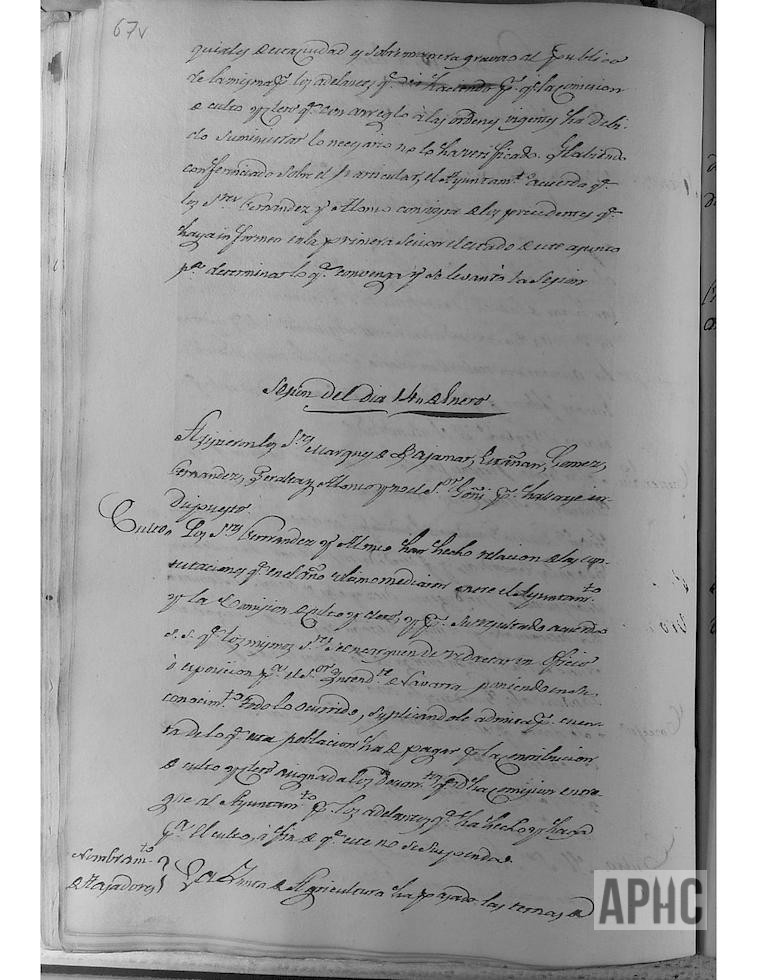 67v
quiales de esta ciudad y sobremanera gravoso al publico
de la misma pr. los adelantos qe. hacienda pr. qe. la comision
de culto y clero qe. con arreglo à las ordenes vigentes ha debi-
do suministrar lo necesario no lo ha verificado. Habiendo
conferenciado sobre el particular, el Ayuntamto. acuerda qe.
los Sres. Fernandez y Alonso con vista de los precedentes qe.
haya informen en la primera Sesion el estado de este asunto
pa. determinar lo qe. convenga y se levantò la Sesion
Sesion del dia 14 de Enero
Asistieron los Sres. Marques de Bajamar, Escañan, Gomez,
Fernandez, Peralta y Alonso y no el Sor. Goñi pr. hallarse in-
dispuesto.
Culto
Los Sres. Fernandez y Alonso han hecho relacion de las con-
testaciones qe. en el año ultimo mediaron entre el Ayuntamto.
y la Comision de Culto y clero, y pr. su resultado acuerda
S.S. qe. los mismos Sres. se encarguen de redactar un Oficio
ò esposicion pa. el Sor. Intendte. de Navarra poniendo en su
conocimto. todo lo ocurrido, suplicandole admita pr. cuen-
ta de lo qe. esta poblacion ha de pagar pr. la contribucion
de culto y clero asignada los qe. dha Comision entre-
gue al Ayuntamto. pr. los adelantos qe. ha hecho y haga
pa. el culto, à fin de qe. este no se suspenda.
Nombramto.
de Tajadores
La Junta de Agricultura ha pasado las ternas de
APHC